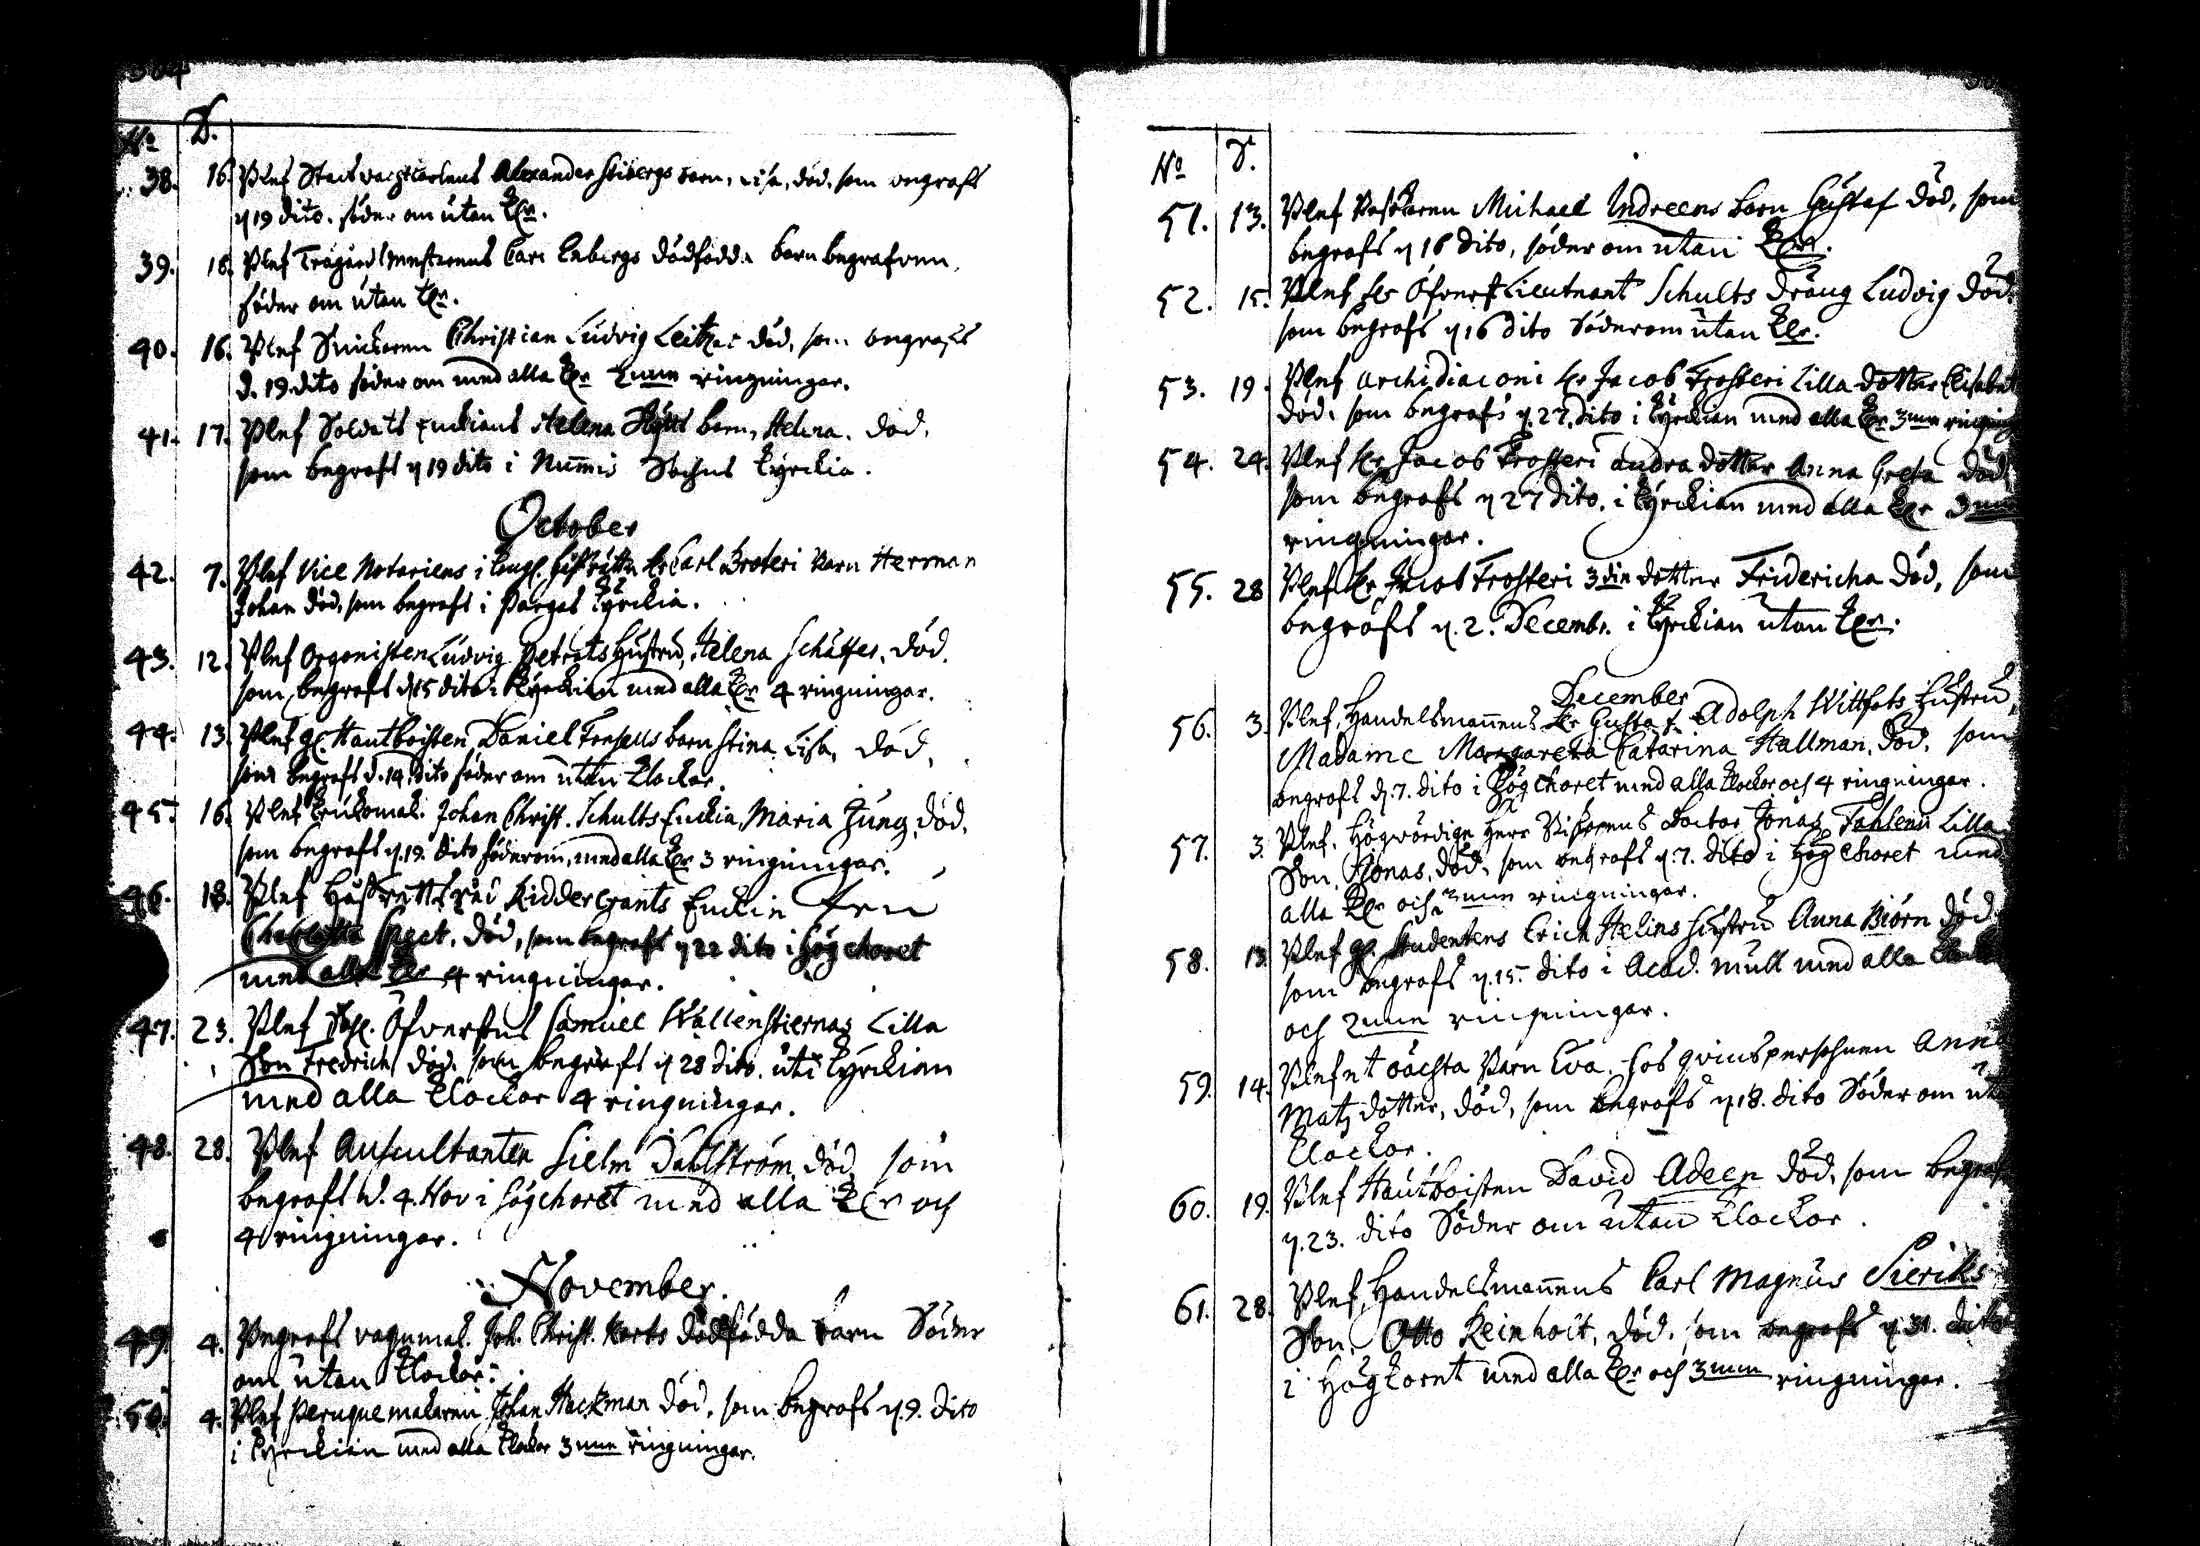 No D.
38. 16. Blef Stads vachtkarlens Alexander Stibergs barn, Lisa, död, som begrafs
d 19 dito. söder om utan Kr.
39. 18. Blef Trägårdsmestarens Carl Enbergs dödfödda barn begrafven,
söder om utan Kr.
40. 16. Blef Snickaren Christian Ludvig Leitzer död, som begrafs
d. 19. dito söder om med alla Kr 2nne ringningar.
41. 17. Blef Soldats Enckians Helena barn, Helena. död,
som begrafs d 19 dito i Nummis Sochns Kyrckia.
October
42. 7. Blef Vice Notariens i Kongl. Hofrätten Hr Carl Broteri barn Herman
Johan död, som begrafs i Pargas Kyrckia.
43. 12. Blef Organisten Ludvig Petrats Hustru, Helena Schäffer, död,
som begrafs d 15 dito i Kyrckian med alla Kr 4 ringningar.
44. 13. Blef gl. Hautboisten Daniel barn Stina Lisa, död,
som begrafs d. 14. dito söder om utan Klockor.
45. 16. Blef Krukomak. Johan Christ. Schults Enckia, Maria Jung, död,
som begrafs d. 19. dito söderom, med alla Kr 3 ringningar.
46. 18. Blef Hofrettsråd Riddercrants Enckia Fru
Charlotta Speet. död, som begrafs d 22 dito i Högchoret
med alla Kr 4 ringningar.
47. 23. Blef Öfverstens Samuel Wallenstiernas Lilla
Son Fredrich död. som begrafs d 28 dito. uti Kyrckian
med alla Klockor 4 ringningar.
48. 28. Blef Auscultanten Dahlström död, som
begrafs d. 4. Nov i Högchoret med alla Kr och
4 ringningar.
November.
49. 4. Begrafs vagnmak. Joh. Christ. Korts dödfödda barn Söder
om utan Klockor.
50. 4. Blef Peruquemakaren Johan Hackman död, som begrafs d. 9. dito
i Kyrckian med alla Klockor 3nne ringningar.
No D.
51. 13. Blef Michael Indreens barn Gustaf död, som
begrafs d 16 dito, söder om utan Kr.
52. 15. Blef Hr Öfverst Lieutnant Schults dräng Ludvig död,
som begrafs d 16 dito Söderom utan Kr.
53. 19. Blef Archidiaconi Hr Jacob Frosteri Lilla dotter Elisabet
död, som begrafs d. 27. dito i Kyrckian med alla Kr 3nne
54. 24. Blef Hr Jacob Frosteri andra dotter Anna Greta död,
som begrafs d 27 dito. i Kyrckian med alla Kr 3nne
ringningar.
55. 28 Blef Hr Jacob Frosteri 3die dotter Fridericha död, som
begrafs d. 2. Decembr. i Kyrckian utan Kr.
December
56. 3. Blef Handelsmannens Hr Gustaf Adolph Wittfots Hustru,
Madame Margareta Catarina Hallman, död, som
begrafs d. 7. dito i Högchoret med alla Klockor och 4 ringningar.
57. 3. Blef. Högvördige Herr Biskopens Doctor Jonas Fahlenii Lilla
Son, Jonas, död, som begrafs d. 7. dito i Hög Choret med
alla Kr och 2nne ringningar.
58. 13. Blef gl. Studentens Erich Helins Hustru Anna Biörn död
som begrafs d. 15. dito i Acad. mull med alla
och 2nne ringningar.
59. 14. Blef et oächta Barn Eva, hos qvinspersohnen Anna
Matz dotter, död, som begrafs d 18. dito Söder om
Klockor.
60. 19. Blef Hautboisten David Adeen död, som
d. 23. dito Söder om utan Klockor.
61. 28. Blef, Handelsmannens Carl Magnus Sieriks
Son, Otto Reinholt, död, som begrafs d. 31. dito
i Högkoret med alla Kr och 3nne ringningar.